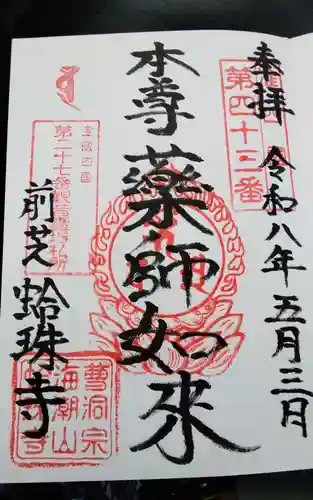 奉拝
令和八年五月三日
第四十三番
本尊薬師如来
第二十七番
前芝
蛤珠寺
曹洞宗
海潮山